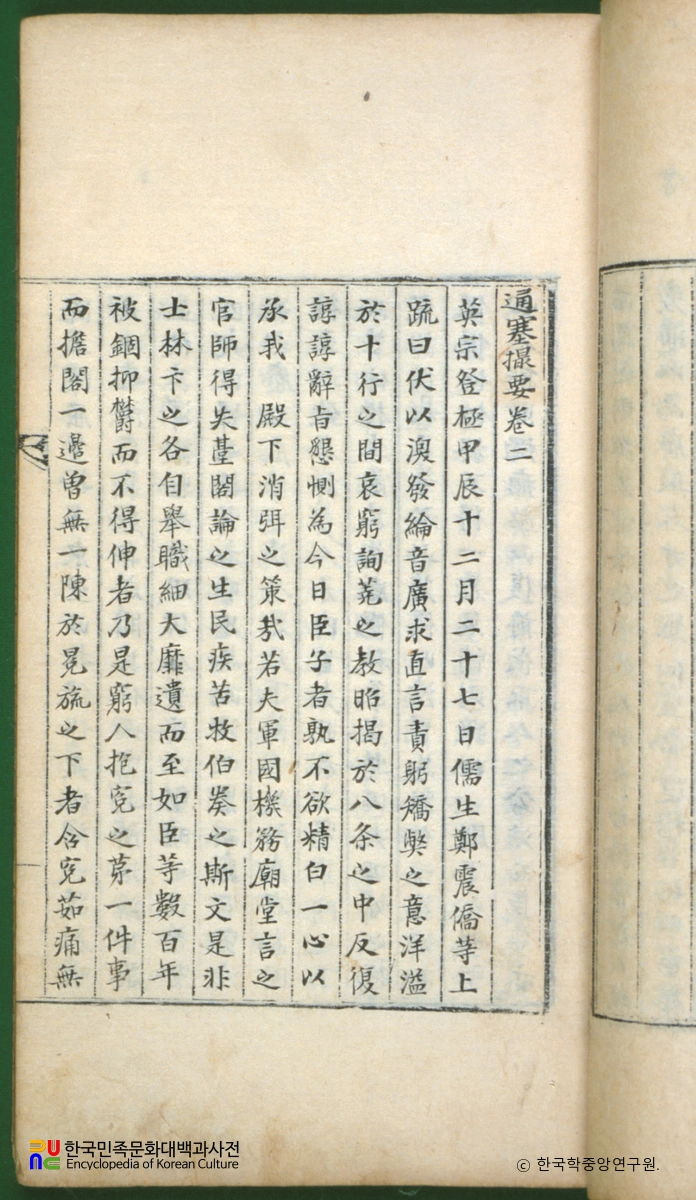 通塞撮要卷二
英宗登極甲辰十二月二十七日儒生鄭震僑等上
疏曰伏以渙發綸音廣求直言責躬矯獘之意洋溢
於十行之間哀窮詢蕘之敎昭揭於八条之中反復
諄諄辭旨懇惻為今日臣子者孰不欲精白一心以
承我 殿下消弭之策哉若夫軍國機務廟堂言之
官師得失䑓閣論之生民疾苦牧伯奏之斯文是非
士林卞之各自舉職細大靡遺而至如臣等數百年
被錮抑欝而不得伸者乃是窮人抱寃之第一件事
而擔閣一邊曾無一陳於冕旒之下者含寃茹痛無
한국민족문화대백과사전
Encyclopedia of Korean Culture
ⓒ 한국학중앙연구원.